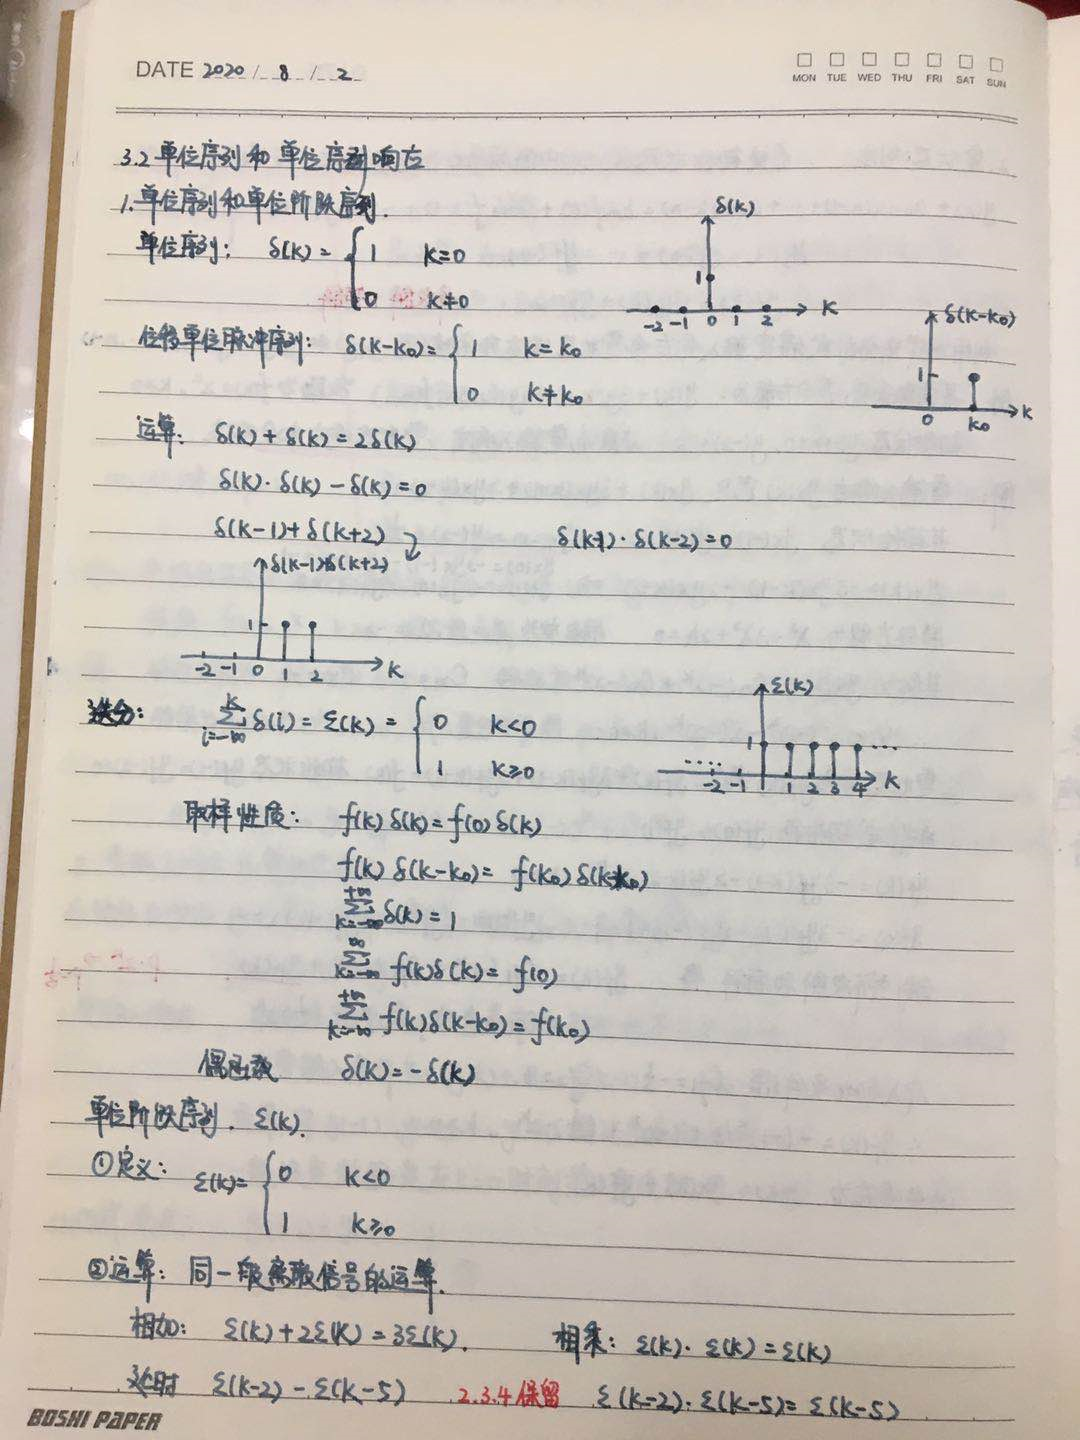 DATE 2020 / 8 / 2
MON TUE WED THU FRI SAT SUN
3.2 单位序列和单位序列响应
1.单位序列和单位阶跃序列.
单位序列: δ(k)= { 1 k=0
0 k≠0
δ(k)
1
-2 -1 0 1 2 k
位移单位脉冲序列: δ(k-k₀)= { 1 k=k₀
0 k≠k₀
δ(k-k₀)
1
0 k₀ k
运算: δ(k)+δ(k)=2δ(k)
δ(k)·δ(k)-δ(k)=0
δ(k-1)+δ(k+2) δ(k-1)·δ(k-2)=0
δ(k-1)+δ(k+2)
1
-2 -1 0 1 2 k
迭分: ∑_{i=-∞}^{k} δ(i)=Σ(k)= { 0 k<0
1 k≥0
Σ(k)
1
-2 -1 1 2 3 4 k
取样性质: f(k)δ(k)=f(0)δ(k)
f(k)δ(k-k₀)=f(k₀)δ(k-k₀)
∑_{k=-∞}^{+∞} δ(k)=1
∑_{k=-∞}^{∞} f(k)δ(k)=f(0)
∑_{k=-∞}^{+∞} f(k)δ(k-k₀)=f(k₀)
偶函数 δ(k)=-δ(k)
单位阶跃序列. Σ(k).
①定义: Σ(k)= { 0 k<0
1 k≥0
②运算: 同一段离散信号的运算.
相加: Σ(k)+2Σ(k)=3Σ(k). 相乘: Σ(k)·Σ(k)=Σ(k)
延时 Σ(k-2)-Σ(k-5) 2.3.4保留 Σ(k-2)·Σ(k-5)=Σ(k-5)
BOSHI PAPER